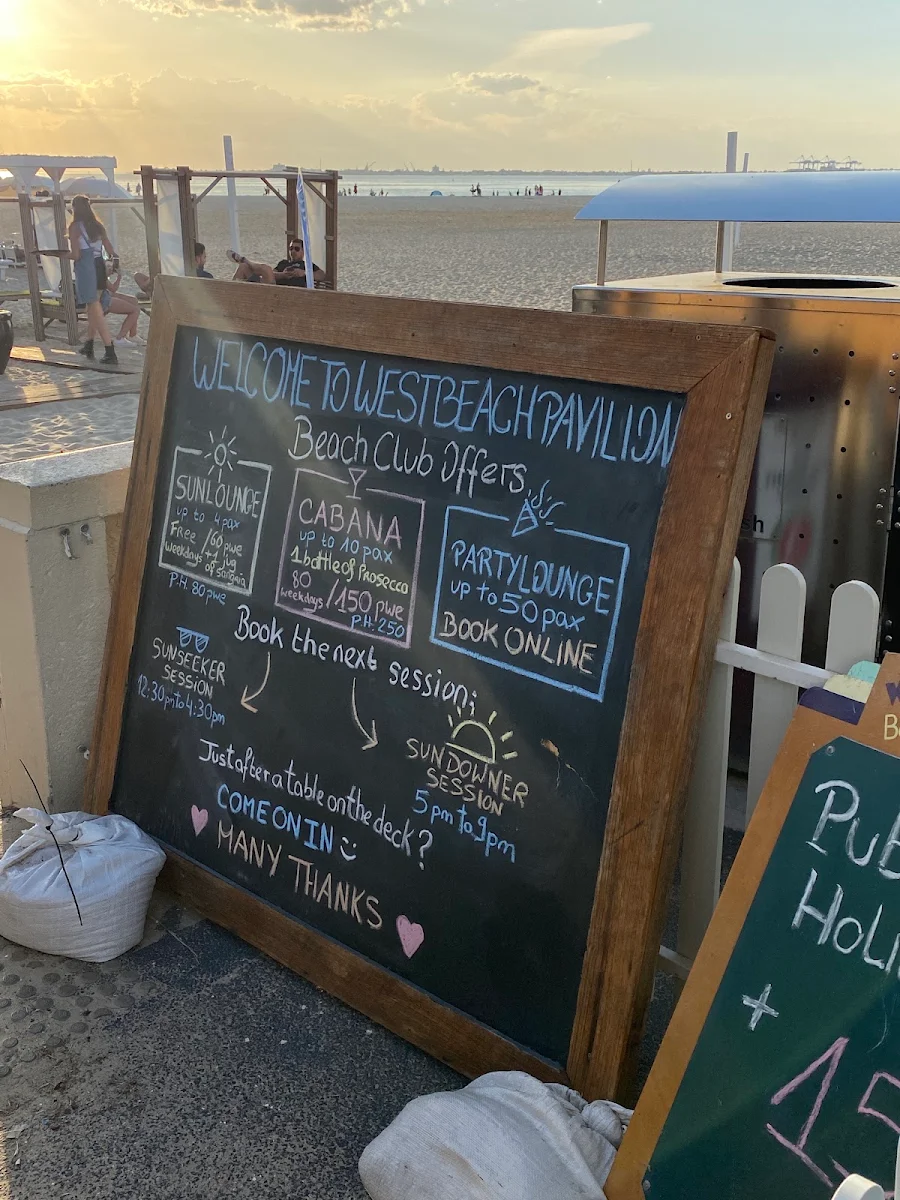 WELCOME TO WESTBEACH PAVILION
Beach Club Offers
SUNLOUNGE
up to 4 pax
Free /60 pwe
weekdays +1 jug
of Sangria
P.H. 80 pwe
CABANA
up to 10 pax
1 bottle of Prosecco
80
weekdays /150 pwe
P.H. 250
PARTYLOUNGE
up to 50 pax
BOOK ONLINE
Book the next session:
SUNSEEKER
SESSION
12:30pm to 4:30pm
SUNDOWNER
SESSION
5pm to 9pm
Just after a table on the deck?
COME ON IN
MANY THANKS
Pub
Holi
+
15